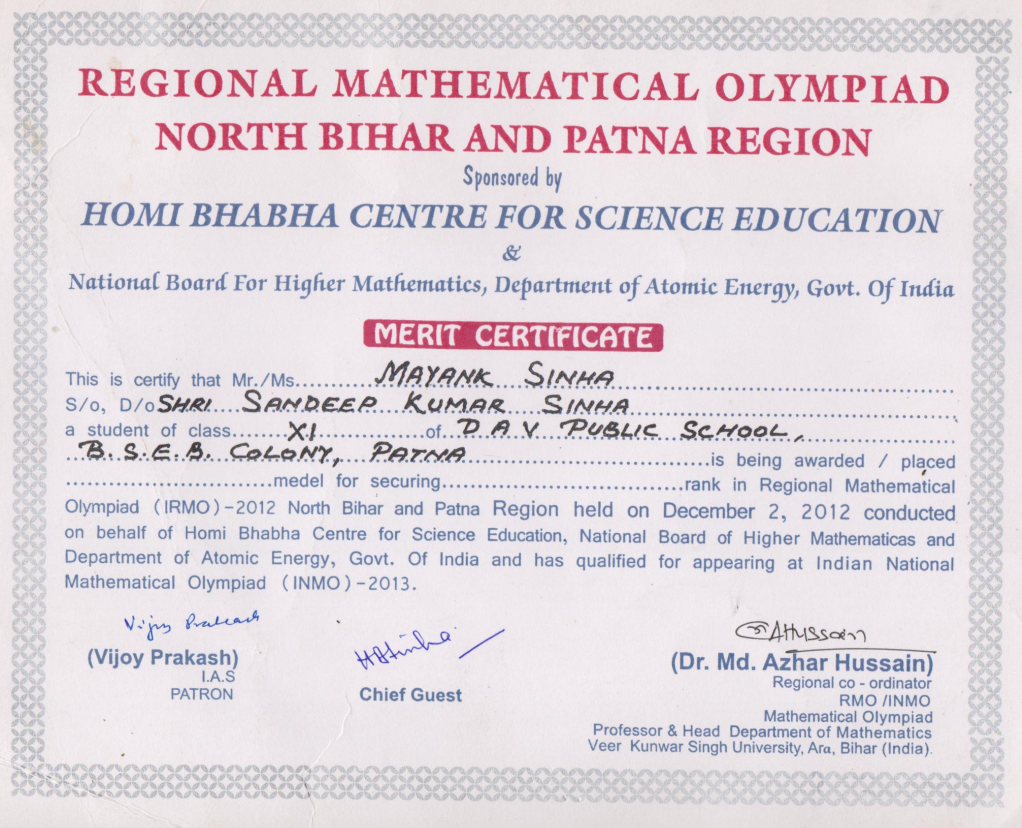 REGIONAL MATHEMATICAL OLYMPIAD
NORTH BIHAR AND PATNA REGION
Sponsored by
HOMI BHABHA CENTRE FOR SCIENCE EDUCATION
&
National Board For Higher Mathematics, Department of Atomic Energy, Govt. Of India
MERIT CERTIFICATE
This is certify that Mr./Ms. MAYANK SINHA
S/o, D/o SHRI SANDEEP KUMAR SINHA
a student of class XI of D A V PUBLIC SCHOOL,
B.S.E.B. COLONY, PATNA is being awarded / placed
medel for securing rank in Regional Mathematical
Olympiad (IRMO)-2012 North Bihar and Patna Region held on December 2, 2012 conducted
on behalf of Homi Bhabha Centre for Science Education, National Board of Higher Mathematicas and
Department of Atomic Energy, Govt. Of India and has qualified for appearing at Indian National
Mathematical Olympiad (INMO)-2013.
Vijoy Prakash
HSinha
AHussain
(Vijoy Prakash)
I.A.S
PATRON
Chief Guest
(Dr. Md. Azhar Hussain)
Regional co - ordinator
RMO /INMO
Mathematical Olympiad
Professor & Head Department of Mathematics
Veer Kunwar Singh University, Ara, Bihar (India).